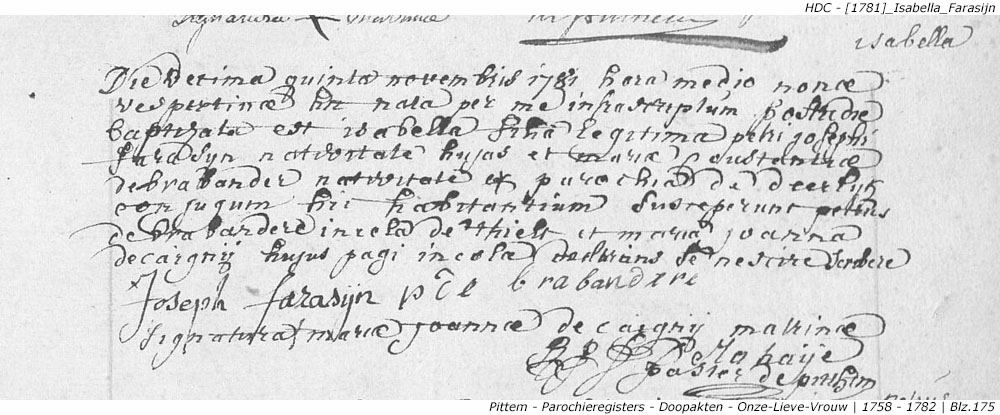 HDC - [1781]_Isabella_Farasijn
signatura matrinæ
isabella
Die decima quinta novembris 1781 hora medio nonæ
vespertinæ hic nata per me infrascriptum postridie
baptizata est isabella filia legitima petri josephi
farasyn nativitate hujas et mariæ Constantiæ
debrabander nativitate ex parochia de deerlyk
conjugum hic habitantium susceperunt petrus
de brabandere incola de thielt et maria joanna
decargnij hujus pagi incola declarans se nescire scribere
Joseph farasijn p c de brabandere
signatura mariæ joannæ de cargnij matrinæ
De Hahaije
pastor de pitthem
Pittem - Parochieregisters - Doopakten - Onze-Lieve-Vrouw | 1758 - 1782 | Blz.175